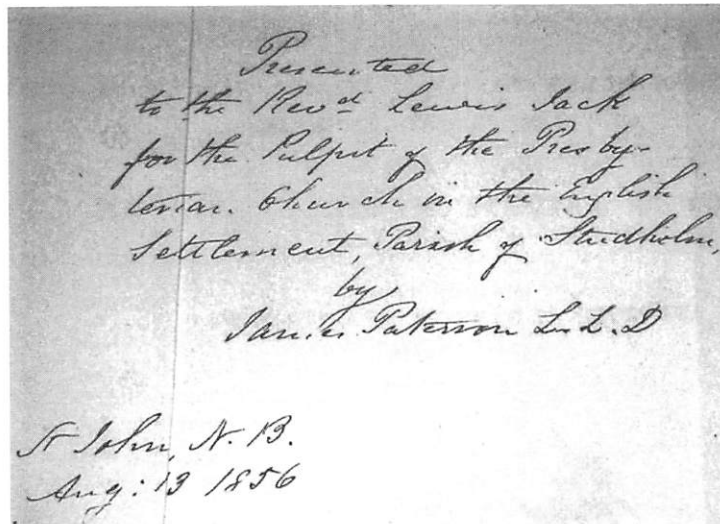 Presented
to the Revd Lewis Jack
for the Pulpit of the Presby-
terian Church in the English
Settlement, Parish of Studholm,
by
James Paterson L.L.D
St John, N.B.
Aug: 13 1856